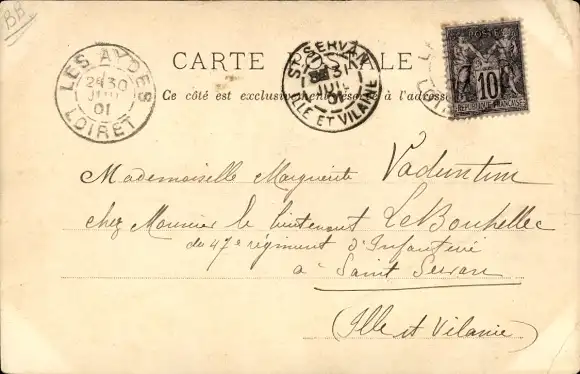 BB
LES AYDES
2E 30
JUIL
01
LOIRET
CARTE POSTALE
ST SERVAN
31
JUIL
01
ILLE ET VILAINE
POSTES
10
REPUBLIQUE FRANCAISE
Ce côté est exclusivement réservé à l'adresse
Mademoiselle Marguerite
chez Monsieur le lieutenant Le Bouhellec
du 47e régiment d'Infanterie
à Saint Servan
(Ille et Vilaine)